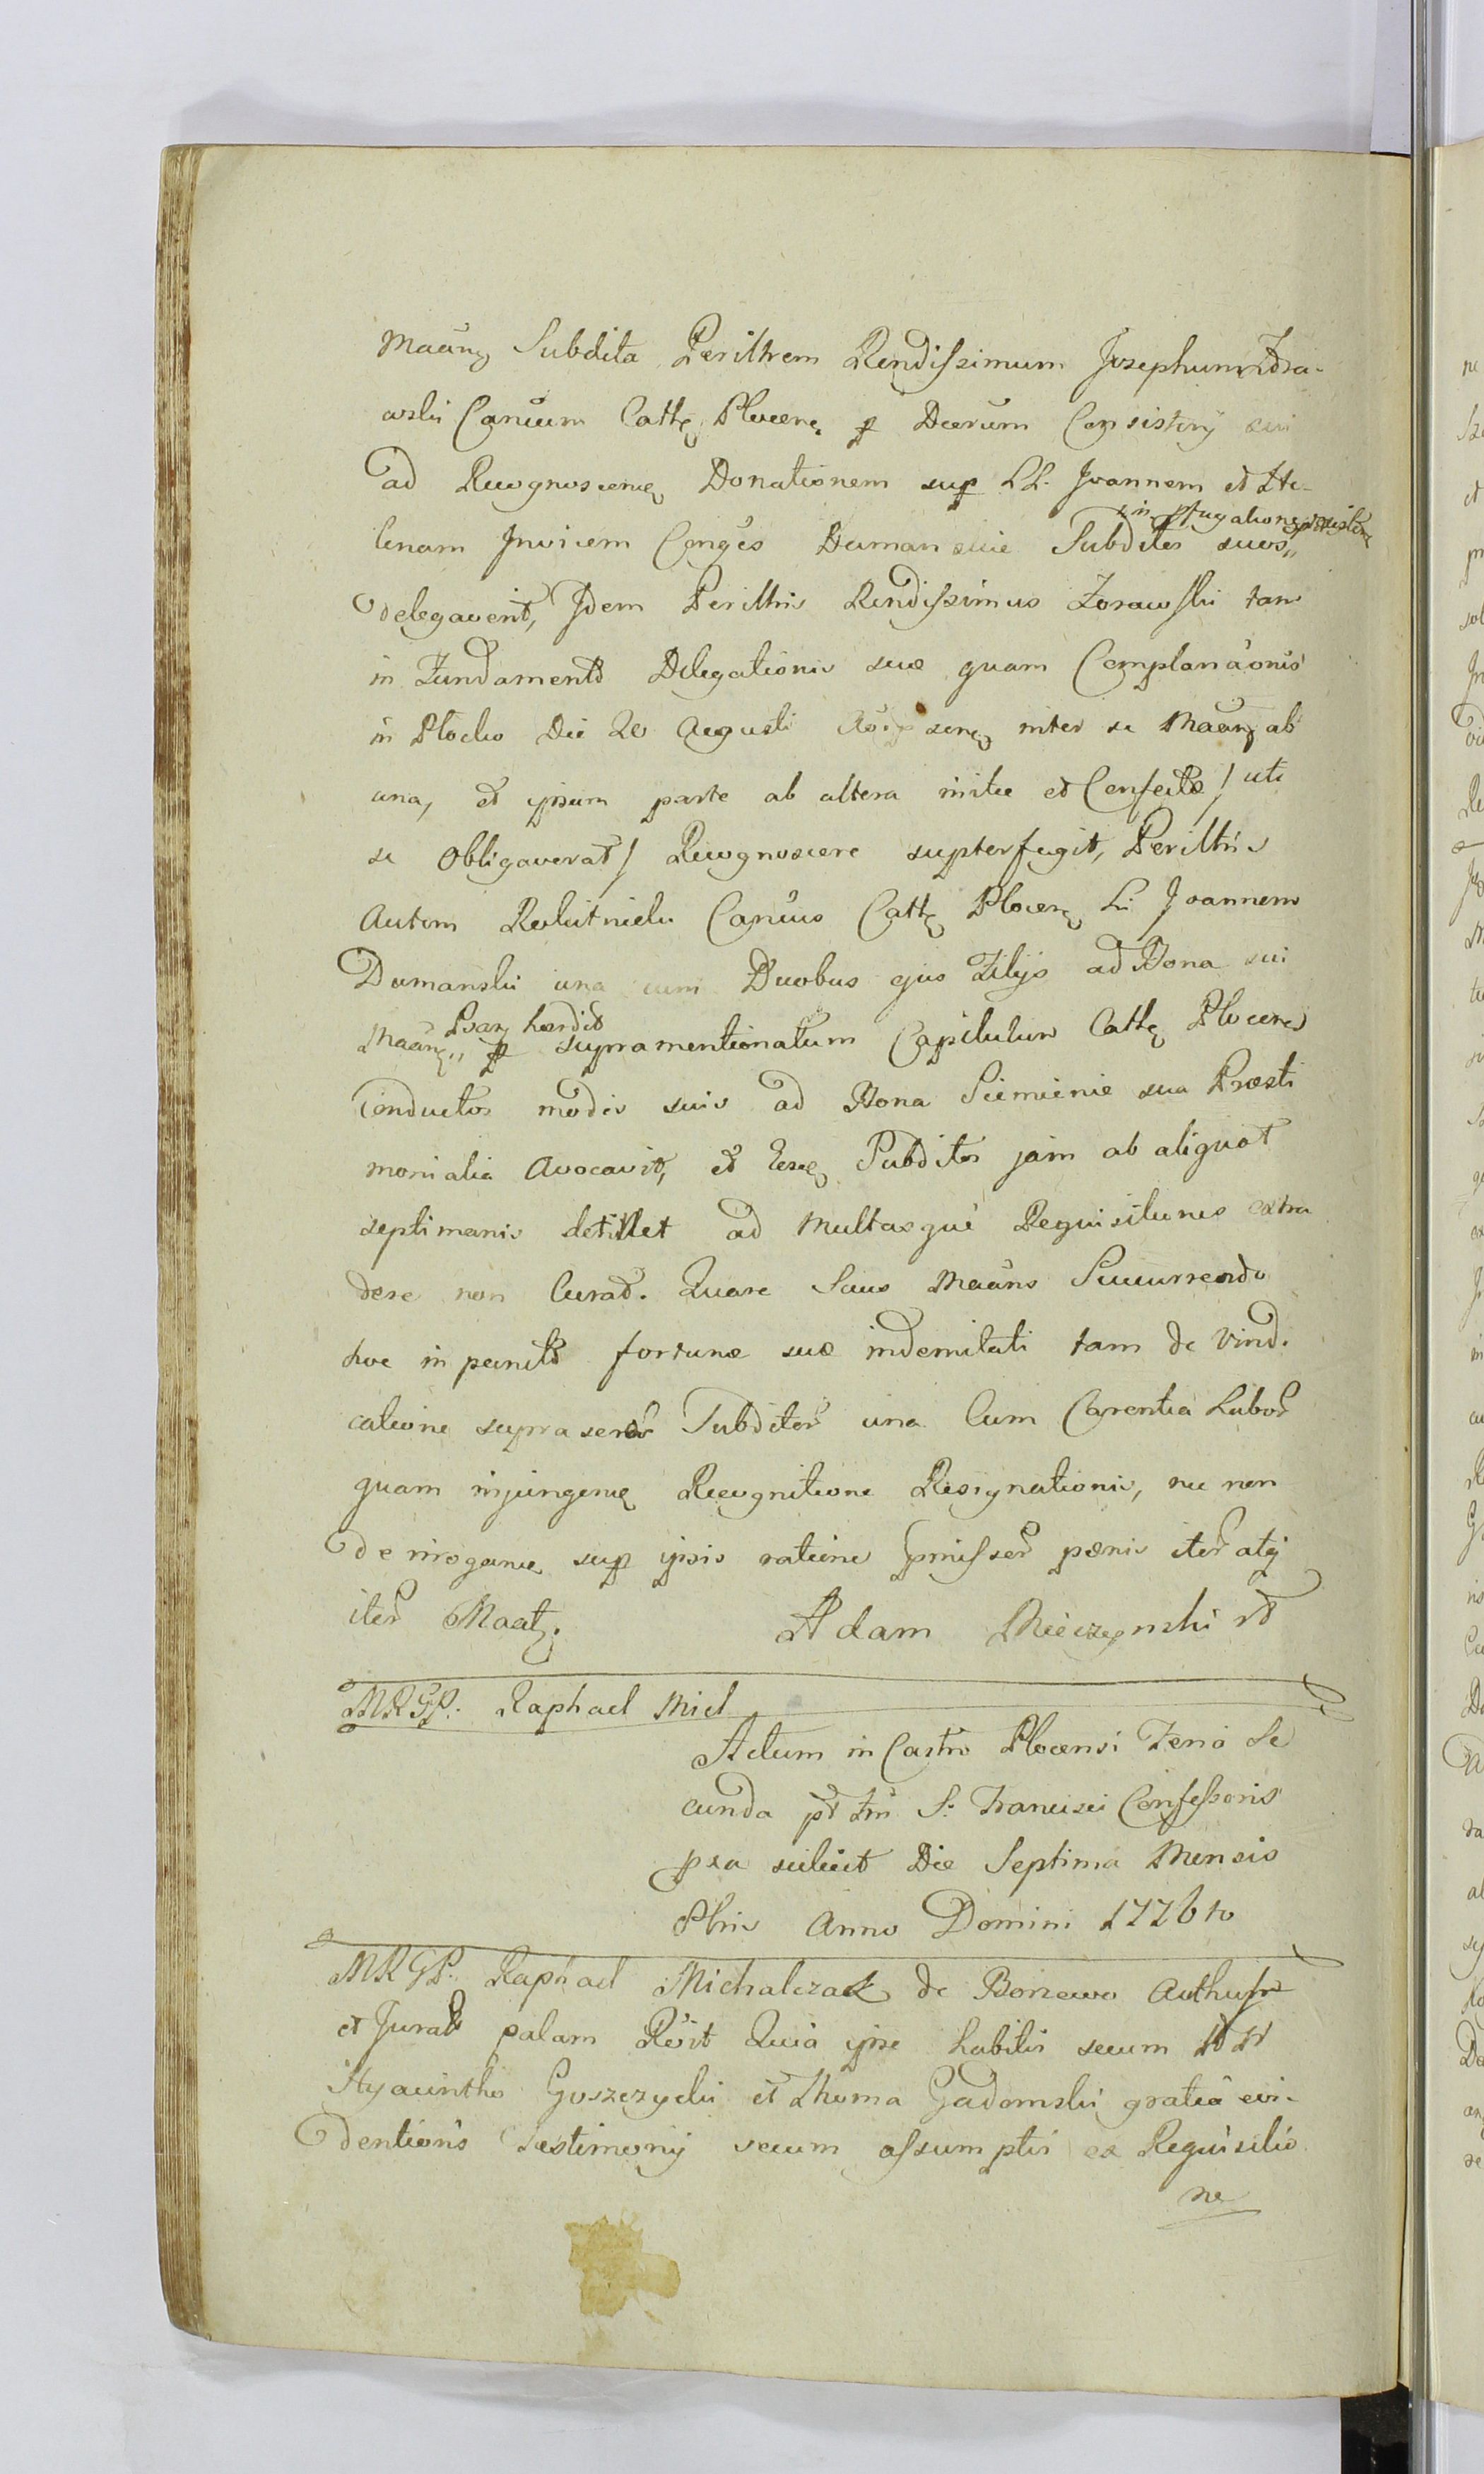 Maanŷ Subdita Perillrem Rendissimum Josephum Zora-
wski Cancum Cathę Plocenę p Decrum Consistorij sui
ad Recognoscenę Donationem sup LL. Joannem et He-
in pfugatione existenę
lenam Invicem Conges Dumanscie Subditos suos,,
delegaverit, Idem Perillris Rendissimus Zorawski tam
in Fundamento Delegationis suæ quam Complanaonis
in Plocko Die 20 Augusti inter se Maanŷ ab
una, et ipsum parte ab altera initæ et Confectæ / uti
se Obligaverat / Recognoscere supterfugit, Perillris
Autem Rokitnicki Cancus Cathę Plocenę LL. Joannem
Dumanski una cum Duobus ejus Filijs ad Bona sui
Psarŷ hærdit
Maanę,, p supramentionatum Capitulum Cathę Plocenę
Conductos modis suis ad Bona Siemienie sua Præsti
monialia Avocavit, et Eosę Subditos jam ab aliquot
septimanis detinet ad Multasque Requisitiones extra
dere non Curat. Quare Saus Maans Succurrendo
hoc in puncto fortunæ suæ indemitati tam de Vind.
catione suprascr Subditor una Cum Carentia Labor
quam injungenę Recognitione Resignationis, nec non
de irrogane sup ipsis ratione pmissor pœnis iter atq
iter Maatŷ. Adam Mieczynski
MRGP. Raphael Mich
Actum in Castro Plocensi Feria Se
cunda pt fm S. Francisci Confessoris
pxa scilicet Die Septima Mensis
8bris Anno Domini 1776to
MRGP. Raphael Michalczak de Boncewo Authus
et Jurat palam Rcvit Quia ipse habitis secum
Hyacintho Goszczycki et Thoma Gadomski gratia evi-
dentioris Testimonij secum assumptis ex Requisitio
ne